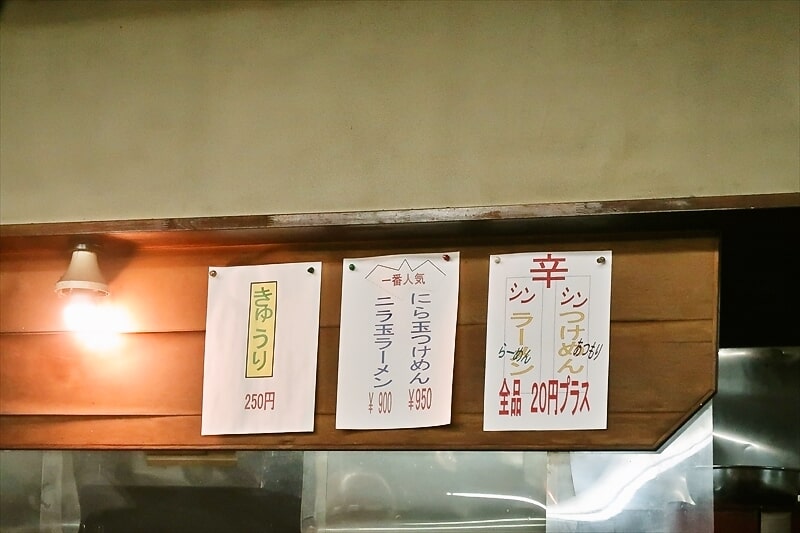 きゅうり
250円
一番人気
にら玉つけめん
¥950
ニラ玉ラーメン
¥900
辛
シン
つけめん
あつもり
シン
ラーメン
らーめん
全品 20円プラス